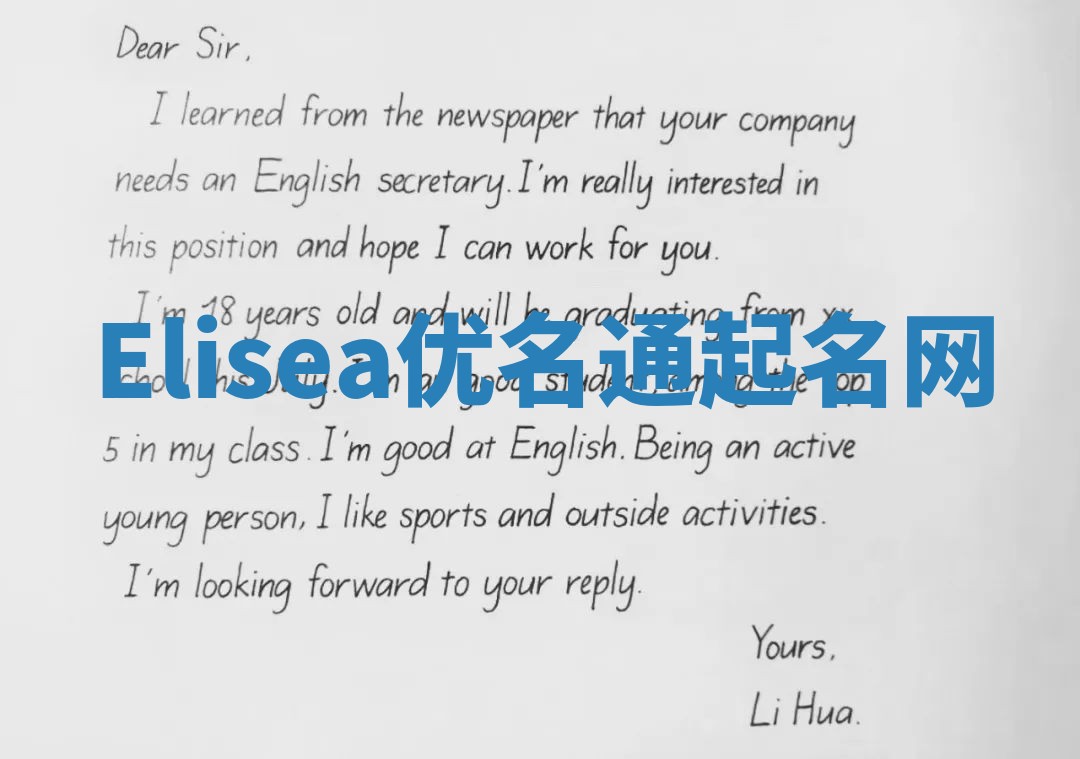 Dear Sir,
I learned from the newspaper that your company
needs an English secretary. I'm really interested in
this position and hope I can work for you.
I'm 18 years old and will be graduating from xx
Elisea优名通起名网
school this July. I'm a good student, among the top
5 in my class. I'm good at English. Being an active
young person, I like sports and outside activities.
I'm looking forward to your reply.
Yours,
Li Hua.